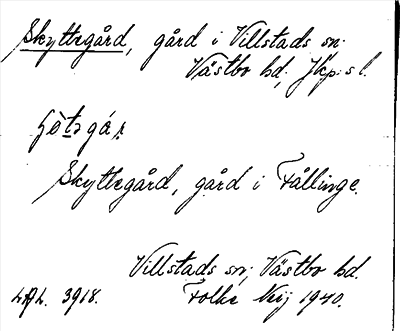 Skyttegård, gård i Villstads sn.
Västbo hd, Jkp. s l.
Skyttegård, gård i Fållinge.
Villstads sn, Västbo hd.
LAL. 3918. Folke Neij 1940.